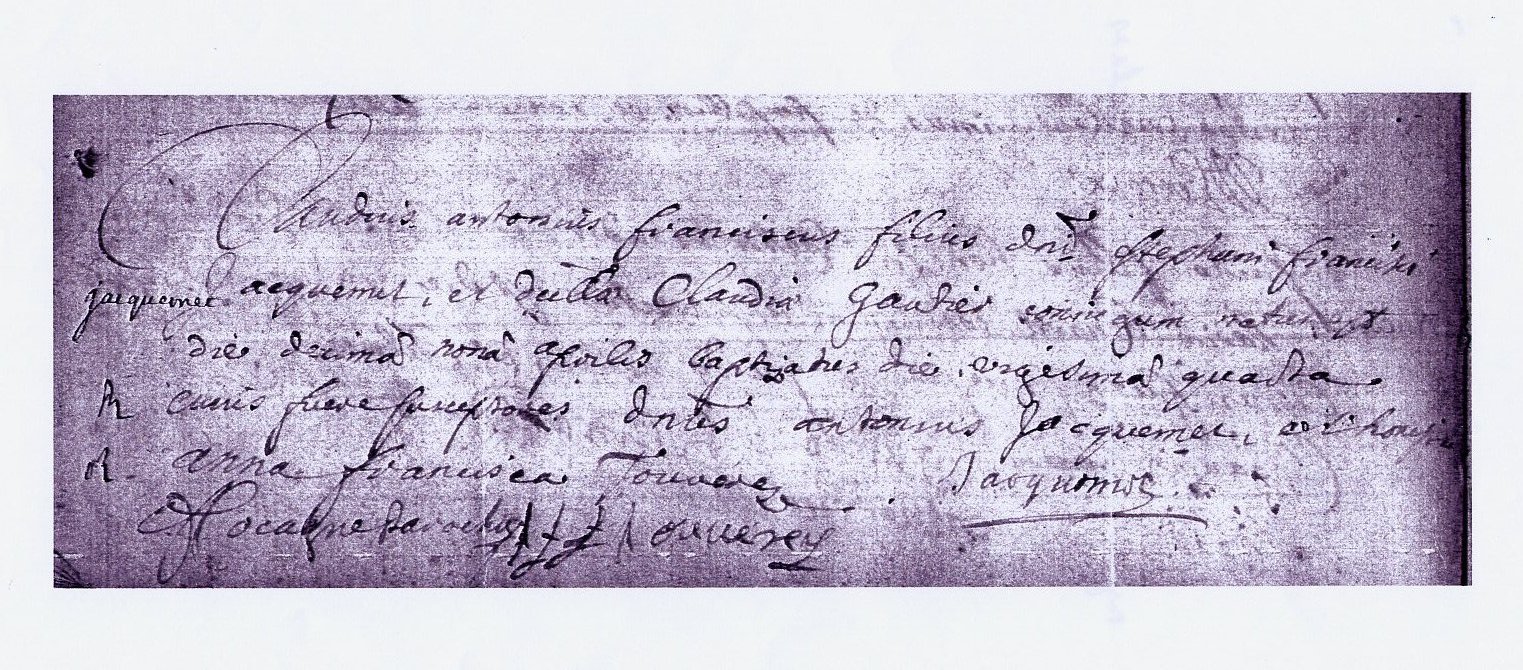 Claudius antonius franciscus filius dni stephani francisci
jacquemet
acquemet, et dulla Claudia Gautier coniugum natus est
die decima nona aprilis baptizatus die vigesima quarta
cuius fuere susceptores dnus antonius Jacquemet, et
anna francisca Touverey. Jacquemet
Touverey